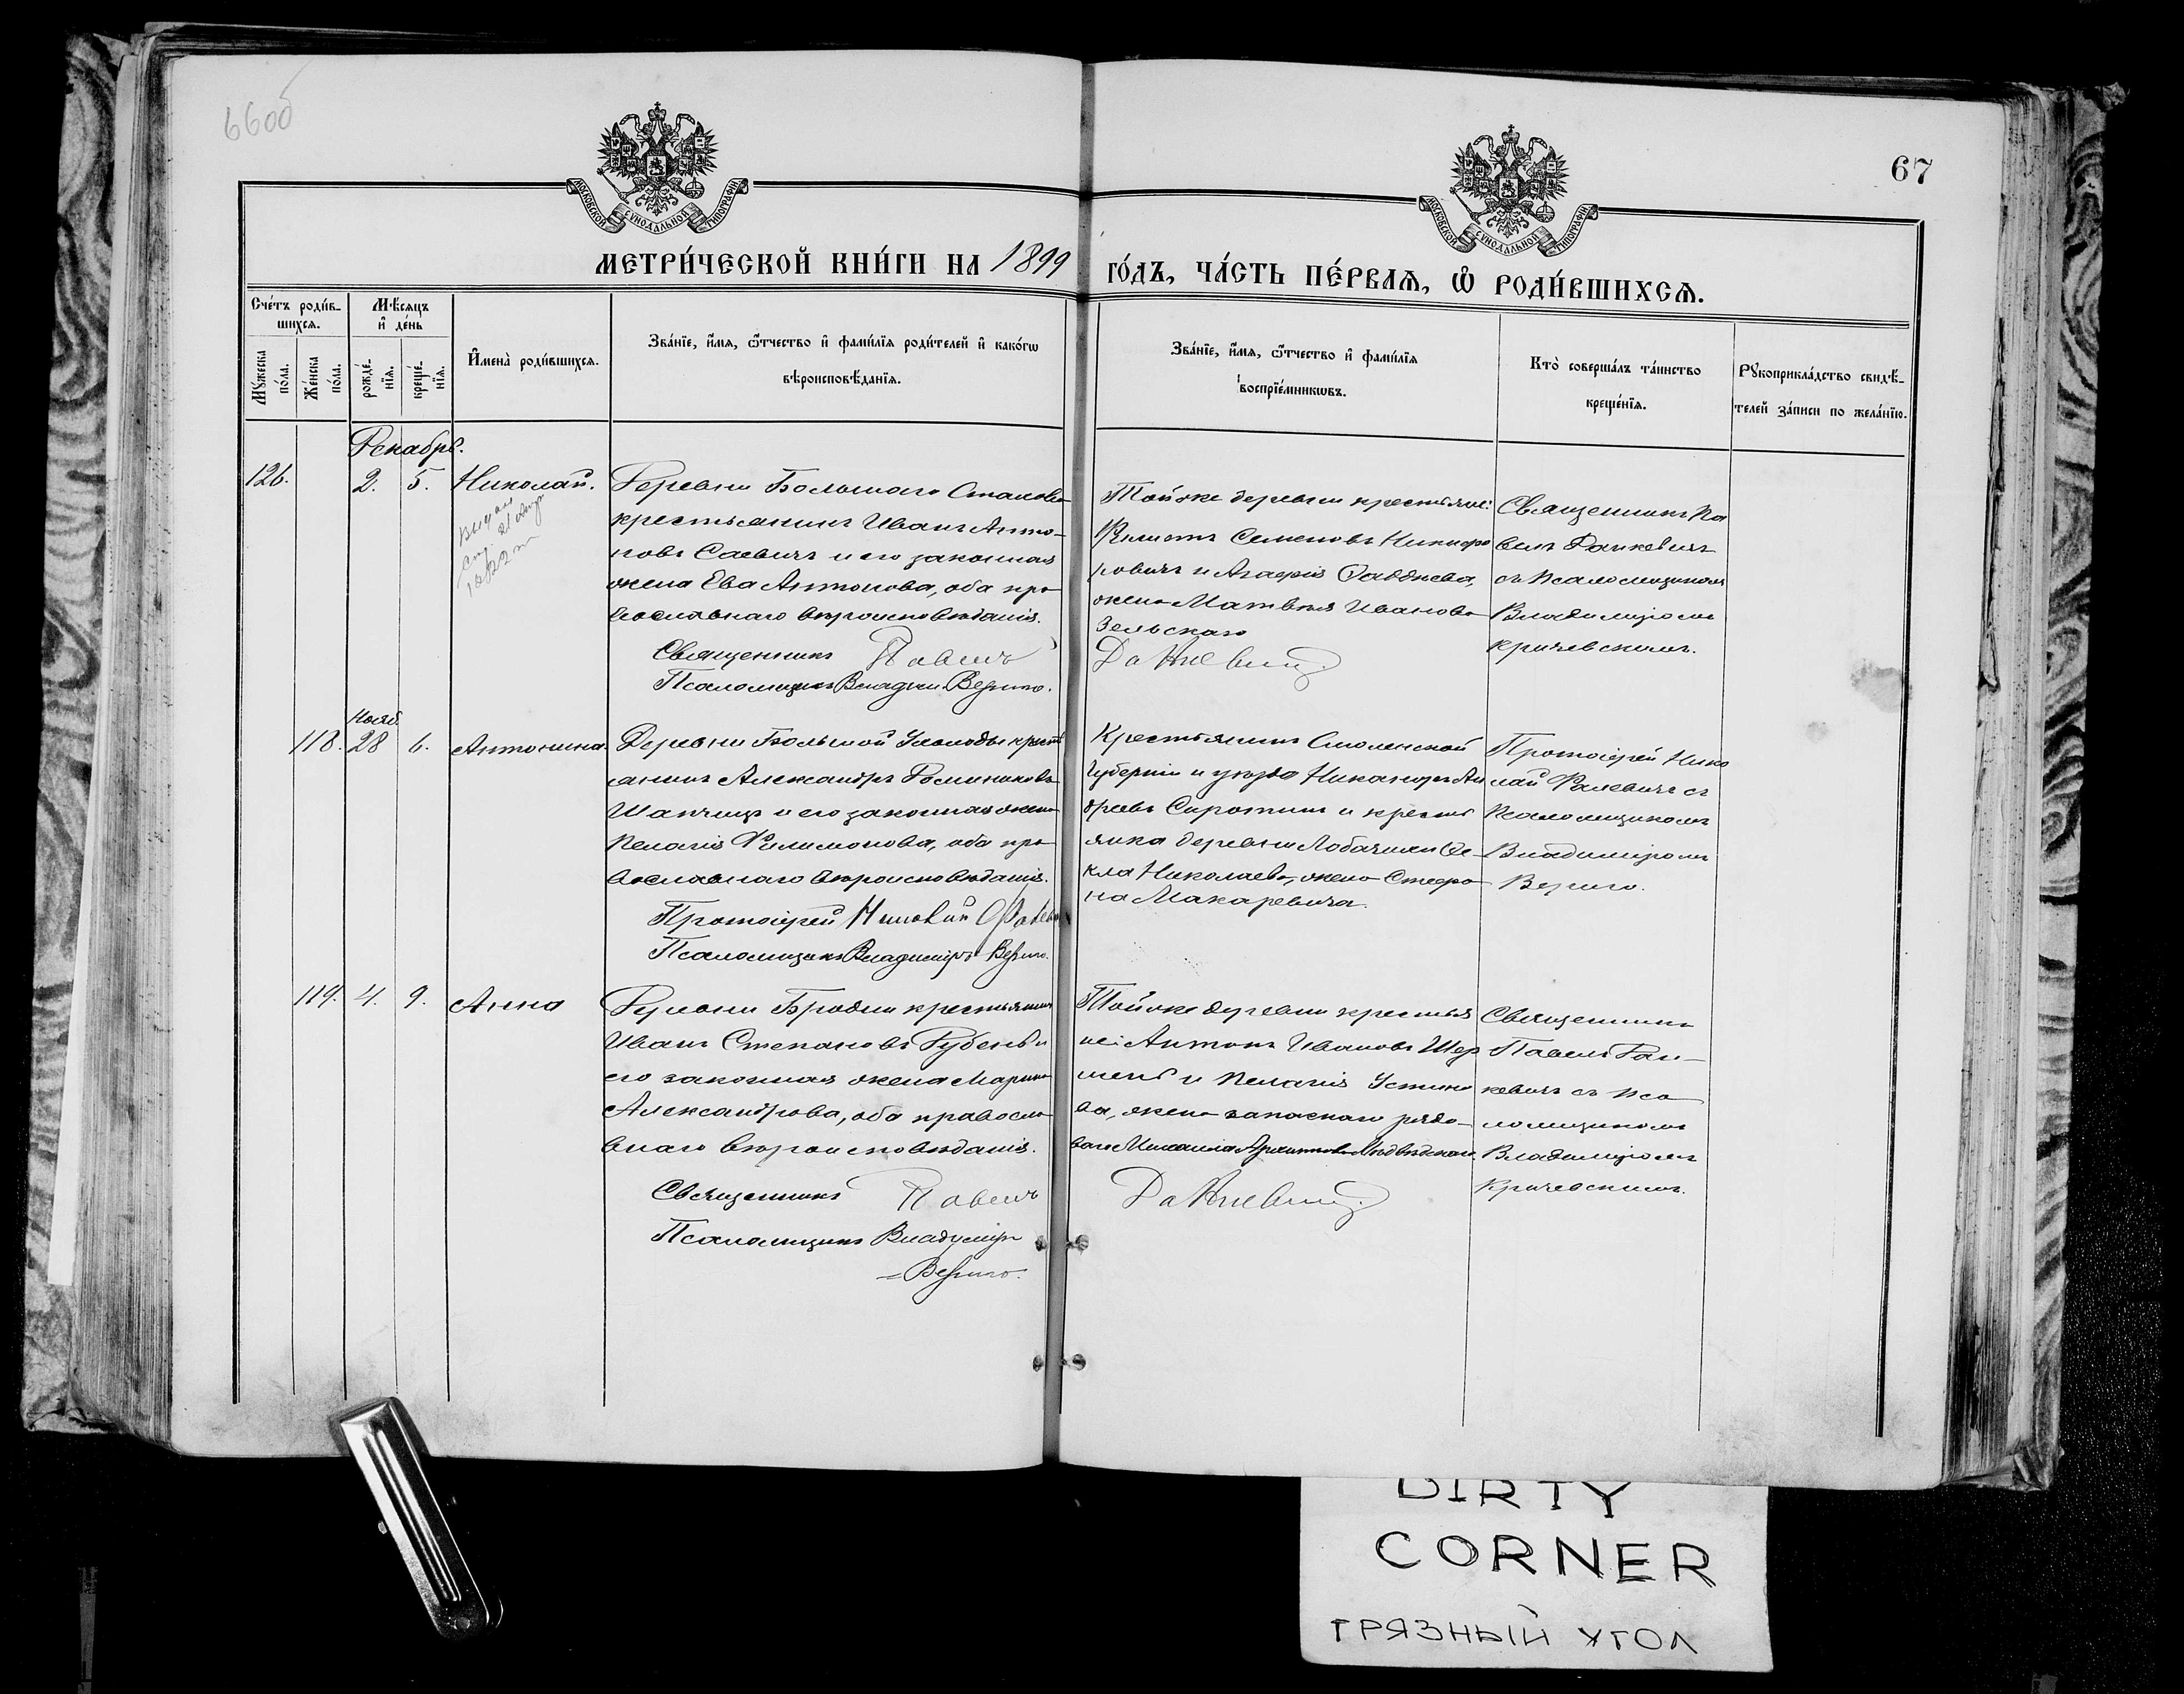 66об
67
МОСКОВСКОЙ СУНОДАЛЬНОЙ ТИПОГРАФІИ
МОСКОВСКОЙ СУНОДАЛЬНОЙ ТИПОГРАФІИ
МЕТРИ́ЧЕСКОЙ КНИ́ГИ НА 1899
ГО́ДЪ, ЧА́СТЬ ПЕ́РВАѦ, Ѽ РОДИ́ВШИХСѦ.
Сче́тъ роди́в-
шихсѧ.
Мѣ́сѧцъ
и҆ де́нь
Мꙋ́жеска
по́ла.
Же́нска
по́ла.
рожде́-
нїѧ.
креще́-
нїѧ.
И҆мена̀ роди́вшихсѧ.
Зва́нїе, и҆́мѧ, ѻ҆́тчество и҆ фами́лїѧ роди́телей и҆ како́гѡ
вѣроисповѣ́данїѧ.
Зва́нїе, и҆́мѧ, ѻ҆́тчество и҆ фами́лїѧ
воспрїе́мникѡвъ.
Кто̀ соверша́лъ та́инство
креще́нїѧ.
Рꙋкоприкла́дство свидѣ́-
телей за́писи по жела́нїю.
Декабрь.
126.
2.
5.
Николай.
Деревни Большаго Стахова
крестьянинъ Иванъ Анто-
новъ Саевичъ и его законная
жена Ева Антонова, оба пра
вославнаго вѣроисповѣданія.
Священникъ Павелъ
Псаломщикъ Владим. Вериго.
Тойже деревни крестьяне:
Семеновъ Никифо
ровичъ и Агафія Фаддѣева,
жена Матвѣя Иванова
Зельскаго
Данкевичъ
Священникъ Па
велъ Данкевичъ
съ псаломщикомъ
Владиміромъ
Кричевскимъ.
Нояб.
118.
28
6.
Антонина.
Деревни Большой Ухолоды крест
янинъ Александръ Доминиковъ
Шапчиц и его законная жена
Пелагія Филимонова, оба пра
вославнаго вѣроисповѣданія.
Протоіерей Николай Фалевич
Псаломщикъ Владиміръ Вериго.
Крестьянинъ Смоленской
Губерніи и уѣзда Никаноръ Ан
дреевъ Сиротинъ и крестья
янка деревни Лобачихи Ѳе-
кла Николаева, жена Стефа
на Макаревича.
Протоіерей Нико
лай Фалевичъ съ
псаломщикомъ
Владиміромъ
Вериго.
119.
4.
9.
Анна
Деревни Бродни крестьянинъ
Иванъ Степановъ Рубень и
его законная жена Марина
Александрова, оба правосла
внаго вѣроисповѣданія.
Священникъ Павелъ
Псаломщикъ Владиміръ
= Вериго.
Тойже деревни крестья
не: Антонъ Ивановъ Шер
шень и Пелагія Устино
ва, жена запаснаго рядо-
ваго Михаила Архипова Медвѣдскаго.
Данкевичъ
Священникъ
Павелъ Дан-
кевичъ съ пса
ломщикомъ
Владиміромъ
Кричевскимъ.
DIRTY
CORNER
ГРЯЗНЫЙ УГОЛ